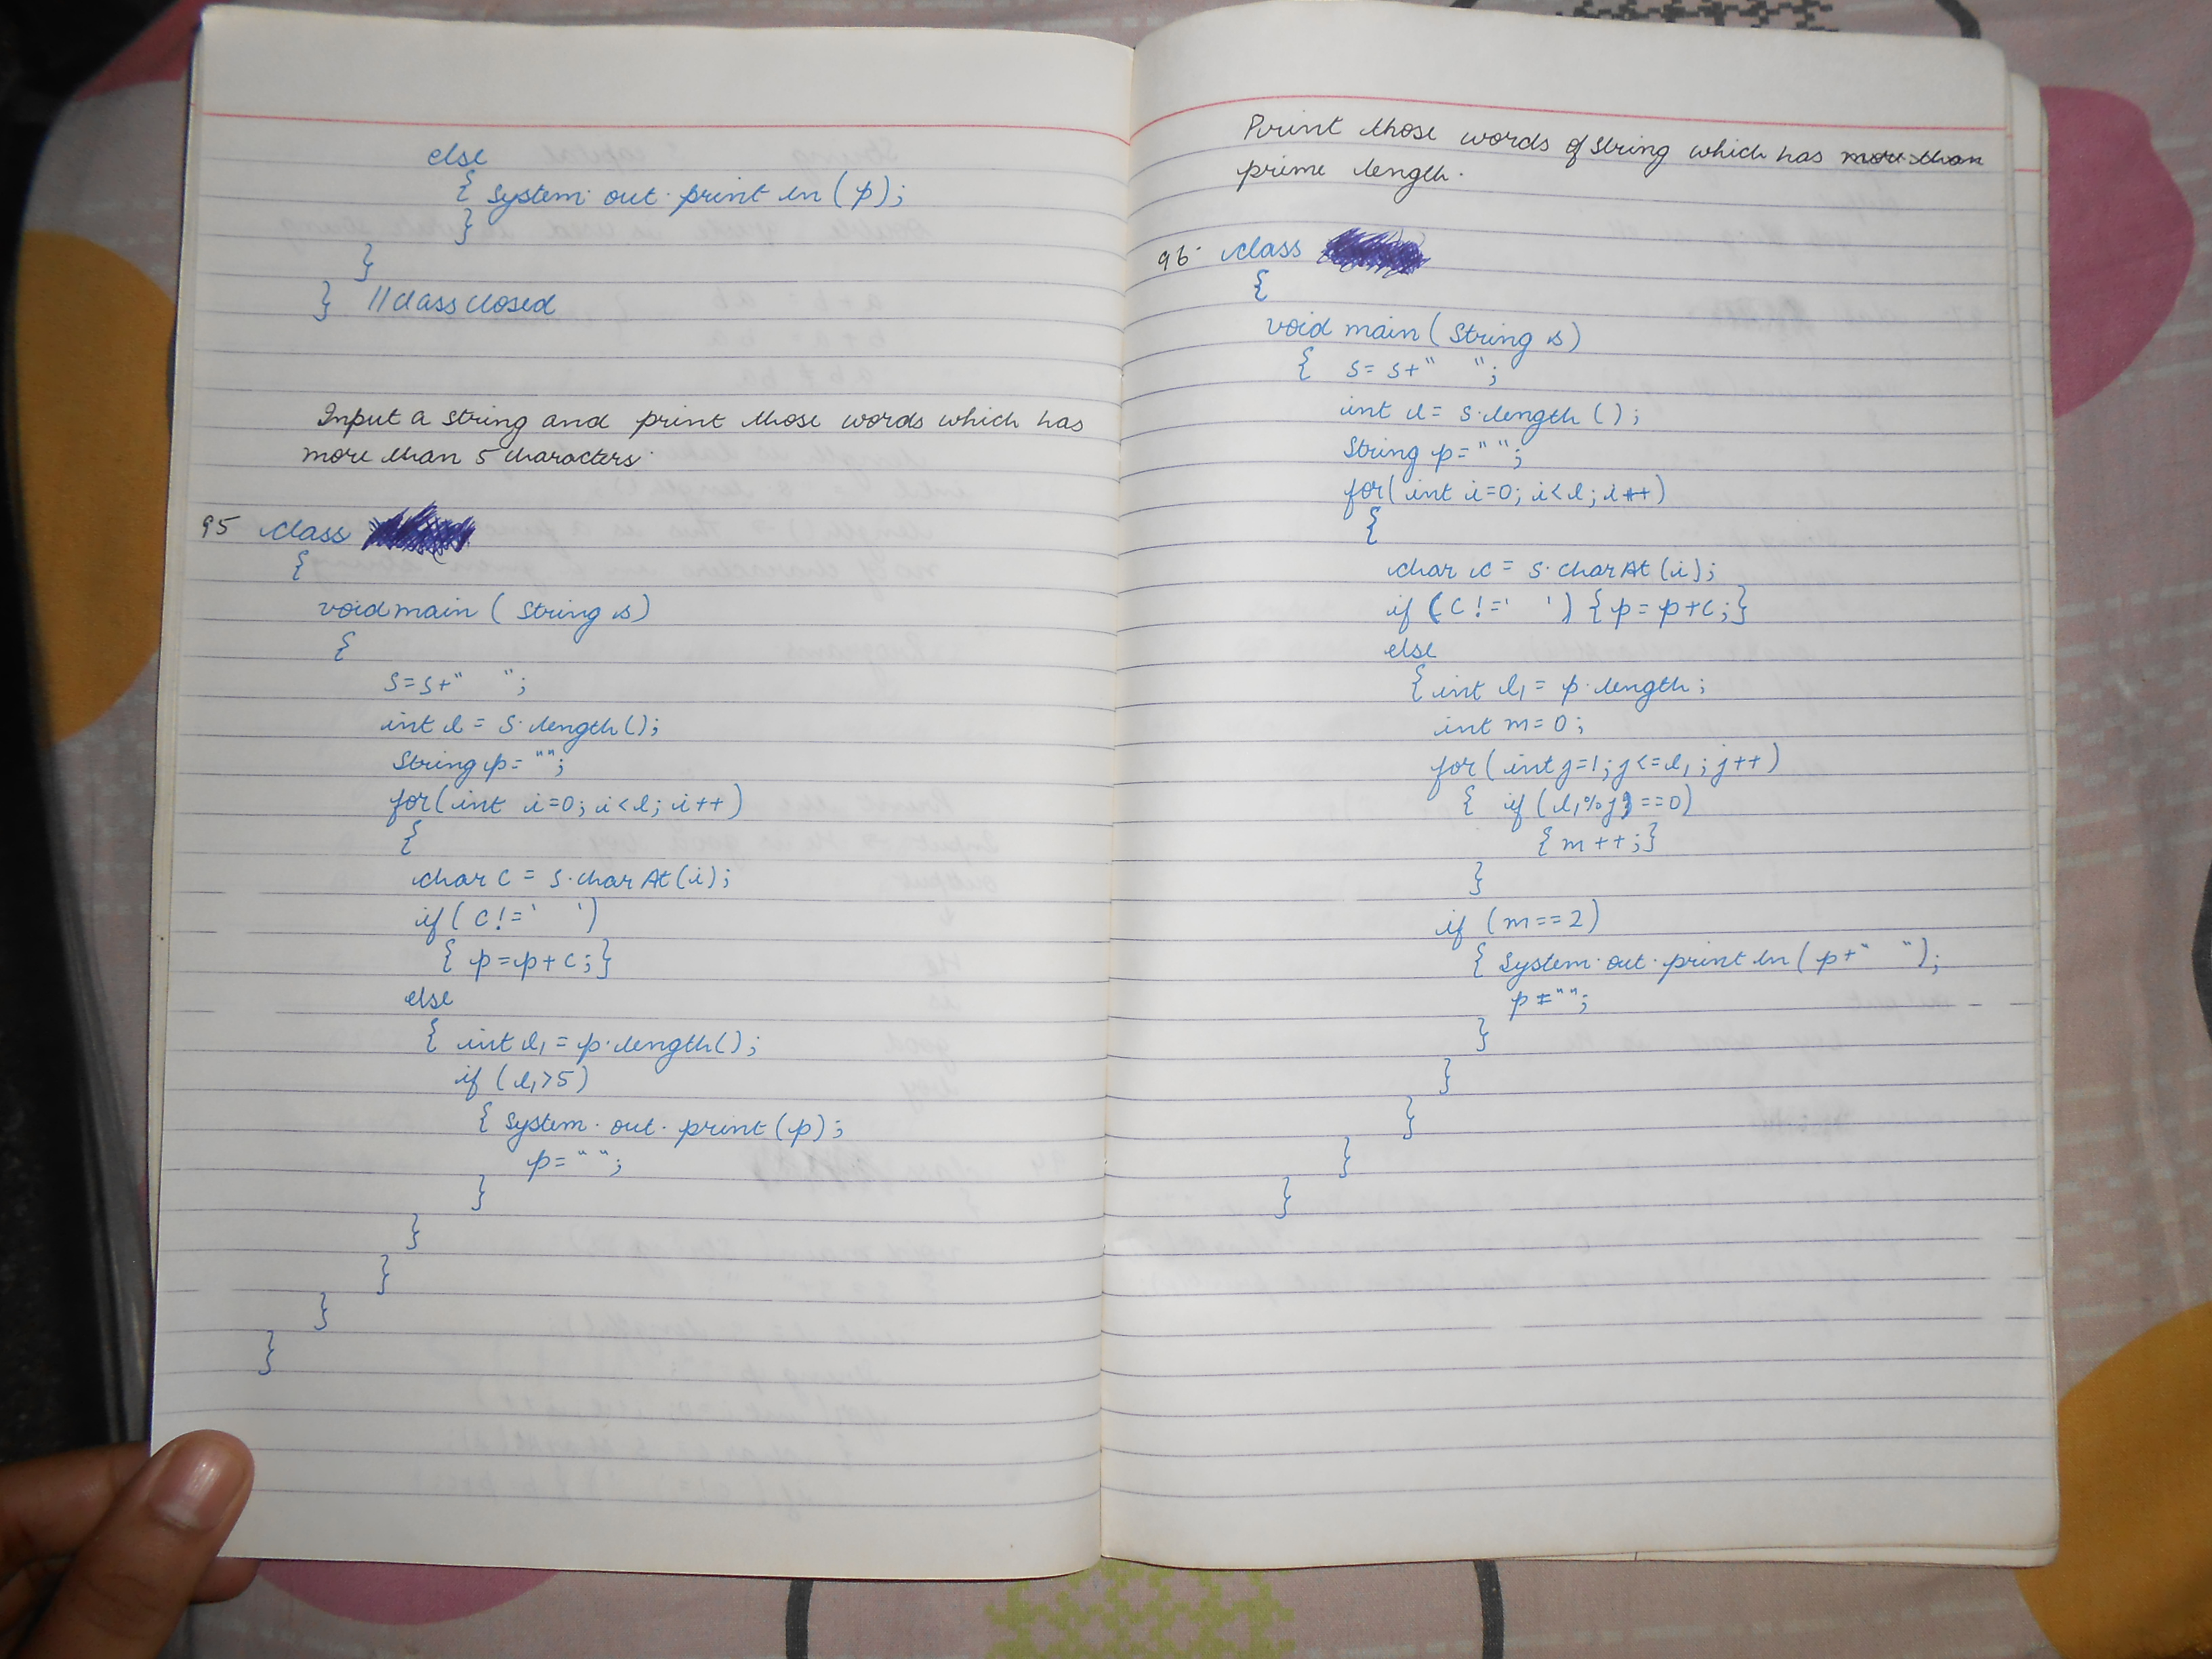 else
{ System.out.println(p);
}
}
} //class closed
Input a string and print those words which has
more than 5 characters.
95 class
{
void main ( String s)
{
s=s+" ";
int l = s.length();
String p= "";
for(int i=0; i<l; i++)
{
char c = s.charAt(i);
if( c!=' ')
{ p=p+c;}
else
{ int l1 = p.length();
if (l1>5)
{ System.out.print(p);
p= "";
}
}
}
}
}
Print those words of string which has more than
prime length.
96. class
{
void main ( String s)
{ s= s+" ";
int l= s.length ();
String p= "";
for( int i=0; i<l; i++)
{
char c = s.charAt(i);
if (c!=' ') { p= p+c;}
else
{ int l1= p.length;
int m=0;
for(int j=1; j<=l1; j++)
{ if (l1%j==0)
{ m++;}
}
if (m==2)
{ System.out.println( p+" ");
p="";
}
}
}
}
}